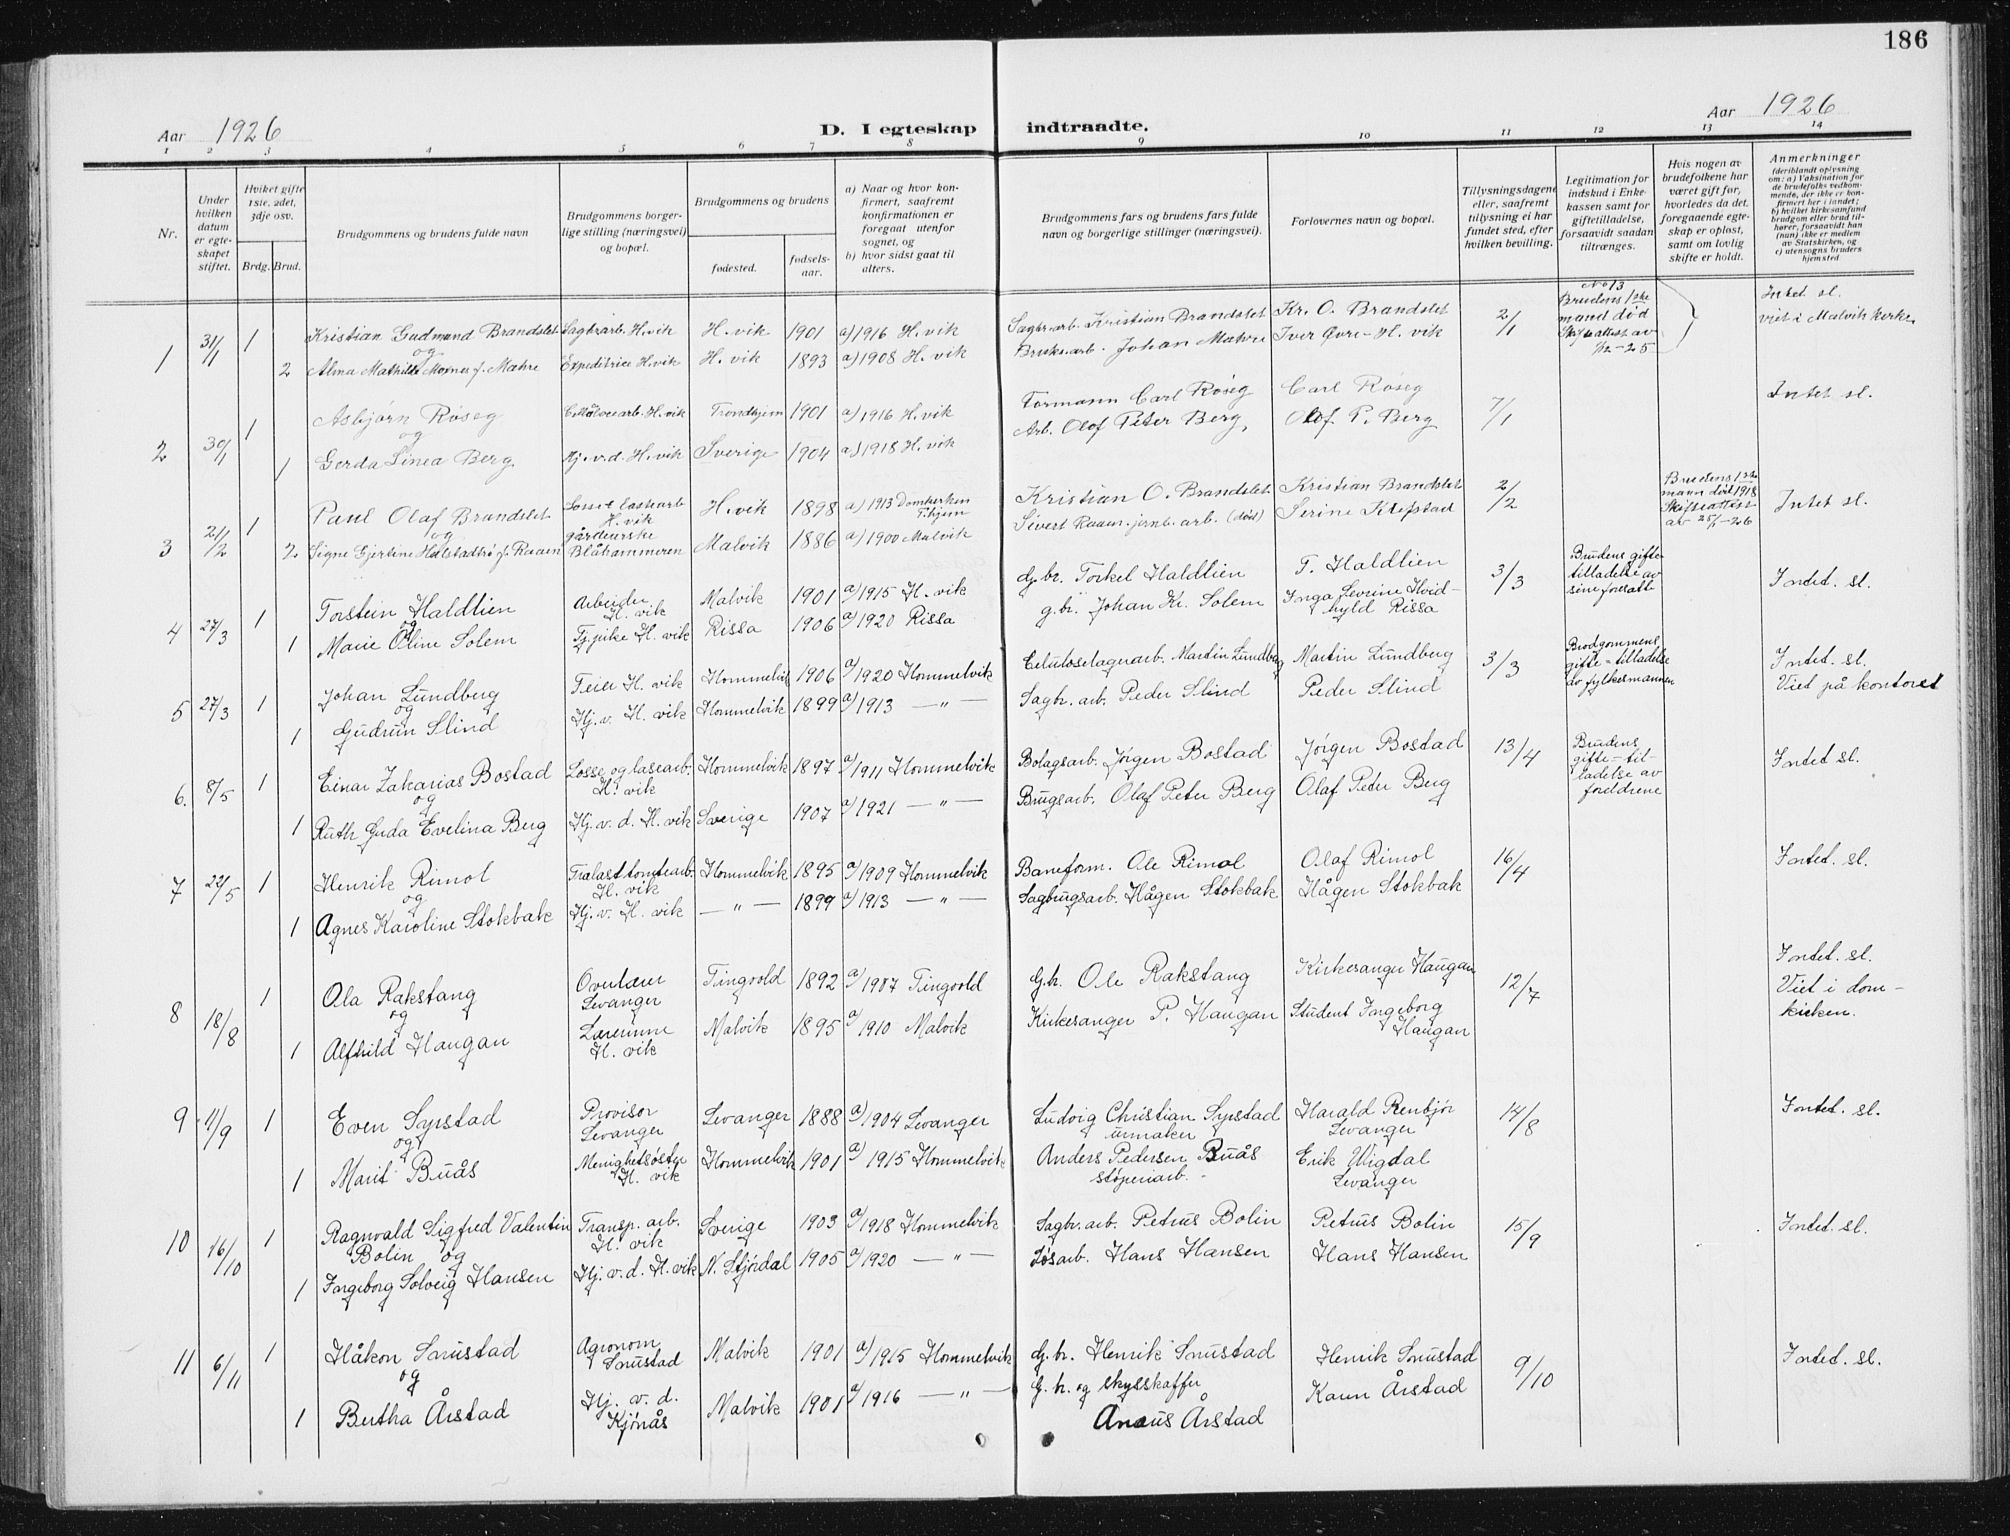 186
Aar 1926
D. I egteskap indtraadte.
Aar 1926
1 2 3 4 5 6 7 8 9 10 11 12 13 14
Nr.
Under hvilken datum er egteskapet stiftet.
Hviket gifte 1ste, 2det, 3dje osv.
Brdg. Brud.
Brudgommens og brudens fulde navn
Brudgommens borgerlige stilling (næringsvei) og bopæl.
Brudgommens og brudens
fødested.
fødselsaar.
a) Naar og hvor konfirmert, saafremt konfirmationen er foregaat utenfor sognet, og
b) hvor sidst gaat til alters.
Brudgommens fars og brudens fars fulde navn og borgerlige stillinger (næringsvei).
Forlovernes navn og bopæl.
Tillysningsdagene eller, saafremt tillysning ei har fundet sted, efter hvilken bevilling.
Legitimation for indskud i Enkekassen samt for giftetilladelse, forsaavidt saadan tiltrænges.
Hvis nogen av brudefolkene har været gift før, hvorledes da det foregaaende egteskap er opløst, samt om lovlig skifte er holdt.
Anmerkninger (deriblandt oplysning om: a) Vaksination for de brudefolks vedkommende, der ikke er konfirmert her i landet; b) hvilket kirkesamfund brudgom eller brud tilhører, forsaavidt han (hun) ikke er medlem av Statskirken, og c) utensogns bruders hjemsted
1 31/1 1 Kristian Gudmund Brandslet Sagbr.arb. H.vik H.vik 1901 a) 1916 H.vik Sagbr.arb. Kristian Brandslet Kr. O. Brandslet 2/1 No 13 Brudens 1ste mand død Skifteattest av Intet sl. viet i Malvik kirke
og
2 Alma Mathilde f. Mæhre Expeditrice H.vik H.vik 1893 a) 1908 H.vik Johan Mæhre Iver Øvre-H.vik
2 30/1 1 Asbjørn Røseg H.vik Trondhjem 1901 a) 1916 H.vik Formann Carl Røseg Carl Røseg 7/1 Intet sl.
og
1 Gerda Linea Berg Hj.v.d. H.vik Sverige 1904 a) 1918 H.vik Arb. Olof Peter Berg, Olof P. Berg
3 21/2 1 Paul Olaf Brandslet H.vik H.vik 1898 a) 1913 Domkirken T.hjem Kristian O. Brandslet Kristian Brandslet 2/2 Brudens 1ste mann død 1918 Skifteattest av Intet sl.
og
2 Signe Gjertine f. Raaen Blåhammeren Malvik 1886 a) 1900 Malvik Sivert Raaen jernb.arb. (død) Serine Klefstad
4 27/3 1 Torstein Haldlien Arbeider H.vik Malvik 1901 a/ 1915 H.vik G.br. Torkel Haldlien T. Haldlien 3/3 Brudens giftetilladelse av sine foresatte Intet. sl.
og
1 Marie Oline Solem Tj.pike H.vik Rissa 1906 a/ 1920 Rissa g.br. Johan Kr. Solem Inga Sevrine Hvidhyld Rissa
5 27/3 1 Johan Lundberg Feier H.vik Hommelvik 1906 a/ 1920 Hommelvik Martin Lundberg Martin Lundberg 3/3 Brudgommens gifte-tilladelse av fylkesmannen Intet. sl. Viet på kontoret
og
1 Gudrun Slind Hj.v. H.vik Hommelvik 1899 a/ 1913 — " — Sagbr. arb. Peder Slind Peder Slind
6. 8/5 1 Einar Zakarias Bostad Losse og lastearb. H.vik Hommelvik 1897 a/ 1911 Hommelvik Bolagsarb. Jørgen Bostad Jørgen Bostad 13/4 Brudens gifte-tilladelse av foreldrene Intet sl.
og
1 Ruth Guda Evelina Berg Hj.v.d. H.vik Sverige 1907 a/ 1921 — " — Brugsarb. Olaf Peter Berg Olaf Peter Berg
7 22/5 1 Henrik Rimol Trælasttomtearb. H.vik Hommelvik 1895 a/ 1909 Hommelvik Baneform. Ole Rimol Olaf Rimol 16/4 Intet. sl.
og
1 Agnes Karoline Stokbak Hj.v. H.vik — " — 1899 a/ 1913 — " — Sagbrugsarb. Hågen Stokbak Hågen Stokbak
8 18/8 1 Ola Rakstang Levanger Tingvold 1892 a/ 1907 Tingvold G.br. Ole Rakstang Kirkesanger Haugan 12/7 Intet. sl. Viet i domkirken.
og
1 Alfhild Haugan Lærerinne H.vik Malvik 1895 a/ 1910 Malvik Kirkesanger P. Haugan Student Ingeborg Haugan
9 11/9 1 Even Syrstad Provisor Levanger Levanger 1888 a/ 1904 Levanger Ludvig Christian Syrstad urmaker Harald Renbjør Levanger 14/8 Intet. sl.
og
1 Marit Buås Menighetsøster H.vik Hommelvik 1901 a/ 1915 Hommelvik Anders Pedersen Buås støperiarb. Erik Wigdal Levanger
10 16/10 1 Ragnvald Sigfred Valentin Bolin Transp. arb. H.vik Sverige 1903 a/ 1918 Hommelvik Sagbr. arb. Petrus Bolin Petrus Bolin 15/9 Intet. sl.
og
1 Ingeborg Solveig Hansen Hj.v.d. H.vik N. Stjørdal 1905 a/ 1920 — " — Løsarb. Hans Hansen Hans Hansen
11 6/11 1 Håkon Saxustad Agronom Malvik 1901 a/ 1915 Hommelvik G.br. Henrik Henrik 9/10 Intet. sl.
og
1 Bertha Årstad Hj. v. d. Kjønås Malvik 1901 a/ 1916 — " — G.br. og skysskaffer Anæus Årstad Karen Årstad